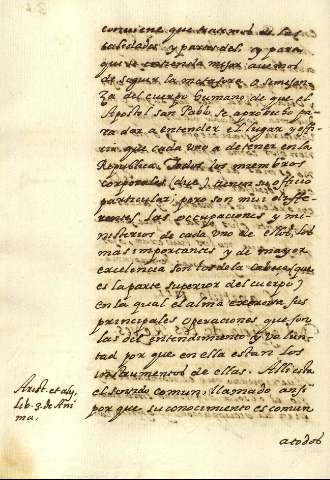 conviene que tratemos de las
calidades y partes del, y para
que se entienda mejor avemos
de seguir la metafora o semejan-
za del cuerpo humano de que el
Apostol san Pablo se aprobecho pa-
ra dar a entender el lugar y offi-
cio que cada uno a de tener en la
Republica. Todos los miembros
corporales (due) tienen su officio
particular, pero son mui differ-
rentes las occupaciones y mi-
nisterios de cada uno de ellos, los
mas importantes y de mayor
excelencia son los de la cabeça (que
es la parte superior del cuerpo)
en la qual el alma exercita sus
principales operaciones que son
las del entendimiento y volun-
tad por que en ella estan los
instrumentos de ellas. Alli esta
el sentido comun, llamado ansi
por que su conocimiento es comun
Arist. et alij
Lib. 3. de Ani
ma.
a todos